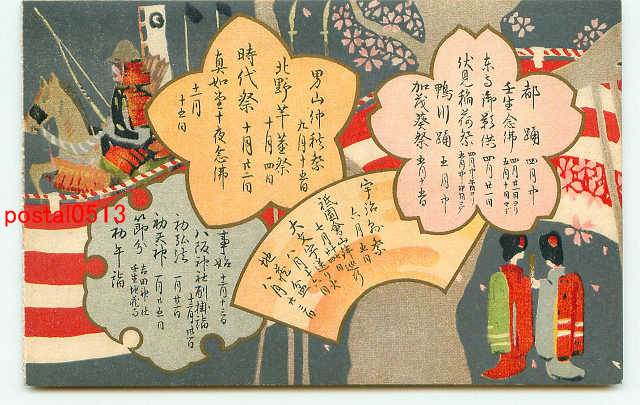 都踊 四月中
壬生念佛 四月廿一日ヨリ 五月十日マデ
東寺御影供 四月廿一日
伏見稲荷祭
鴨川踊 五月中
加茂葵祭 五月十五日
男山仲秋祭 九月十五日
北野芋茎祭 十月四日
時代祭 十月廿二日
真如堂十夜念佛
十一月
十五日
宇治お祭
六月五日
祇園會
七月
大文字送り火
八月
地蔵盆
八月廿三日
事始 十二月十三日
八坂神社削掛詣
十二月卅一日
初弘法 一月廿一日
初天神 一月廿五日
節分 吉田神社
壬生地蔵寺
初午詣
postal0513